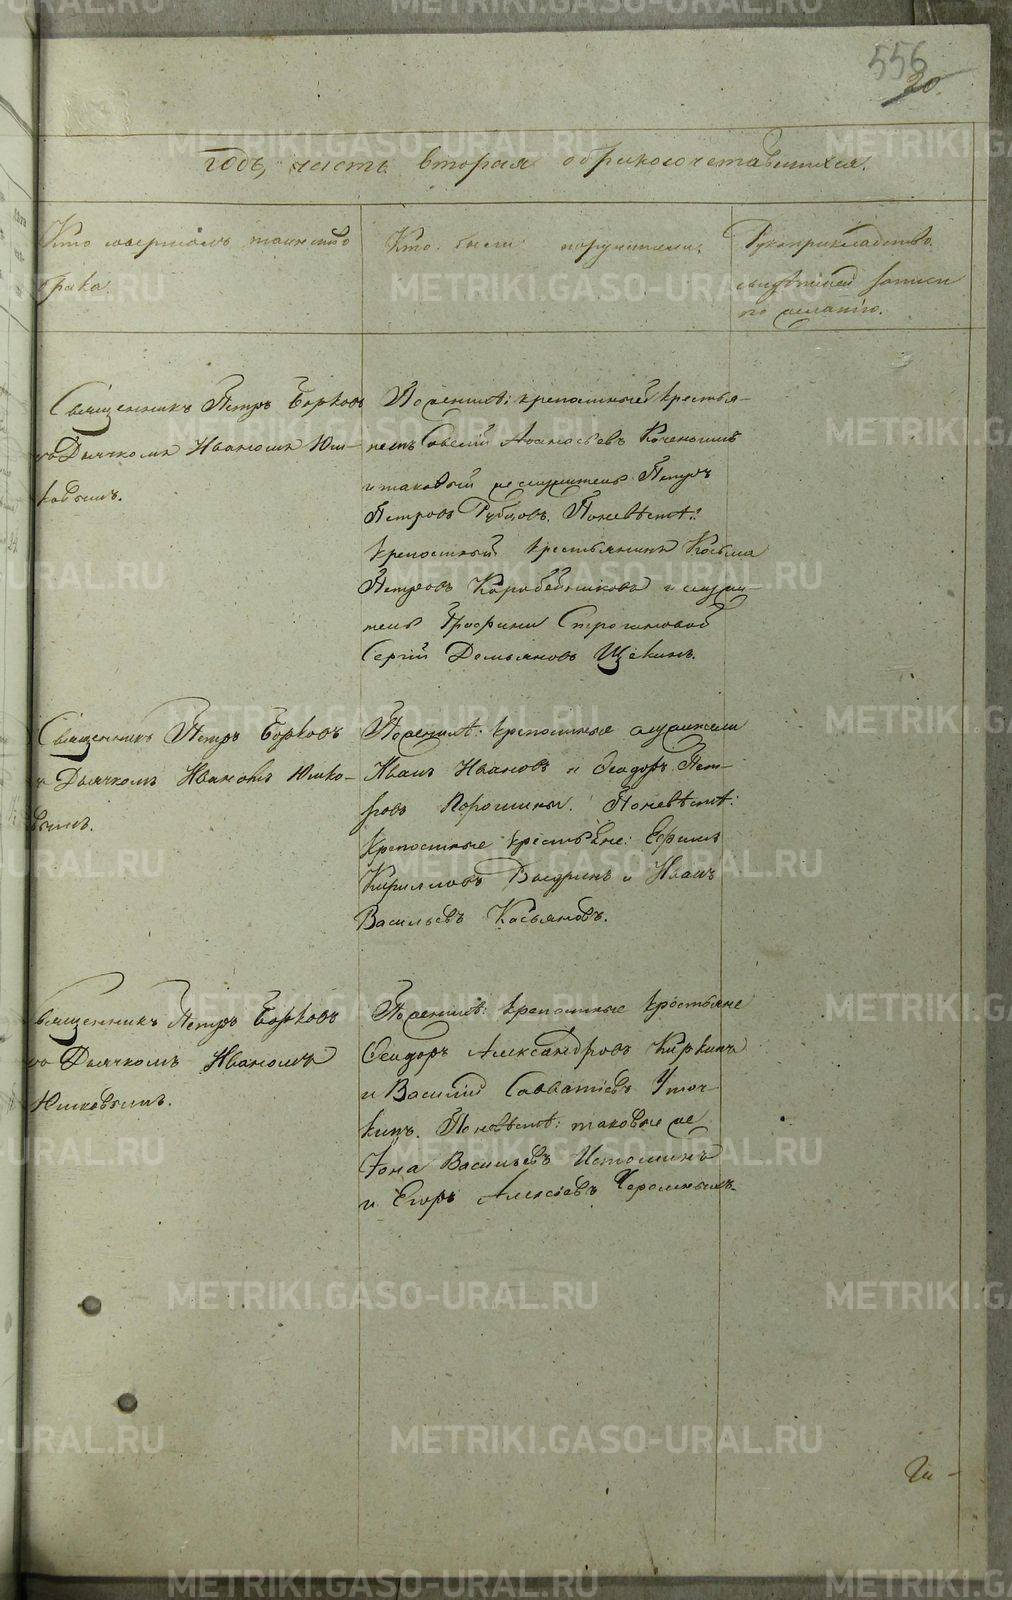 556
20.
годъ, часть вторая о бракосочетавшихся.
Кто совершалъ таинство
брака.
Кто были поручители.
Рукоприкладство
свидѣтелей записи
по желанію.
Священникъ Петръ Борковъ
съ Дьячкомъ Иваномъ Юш-
ковымъ.
По женихѣ: крепостный крестья-
нинъ Савелій Аѳанасьевъ
и таковый же служитель Петръ
Петровъ Рубцовъ. По невѣстѣ:
крепостный крестьянинъ Косьма
Петровъ Коробейниковъ и служи-
тель Графини Строгановой
Сергій Демьяновъ Щекинъ.
Священникъ Петръ Борковъ
съ Дьячкомъ Иваномъ Юшко-
вымъ.
По женихѣ: крепостные служители
Иванъ Ивановъ и Ѳеодоръ Пет-
ровъ Порошины. По невѣстѣ:
Крепостные крестьяне: Ефимъ
Кирилловъ Выдринъ и Иванъ
Васильевъ Касьяновъ.
Священникъ Петръ Борковъ
съ Дьячкомъ Иваномъ
Юшковымъ.
По женихѣ: крепостные крестьяне
Ѳеодоръ Александровъ Киркинъ
и Василій Савватіевъ Уточ-
кинъ. По невѣстѣ: таковые же
Іона Васильевъ Истоминъ
и Егоръ Алексѣевъ Черемныхъ.
METRIKI.GASO-URAL.RU